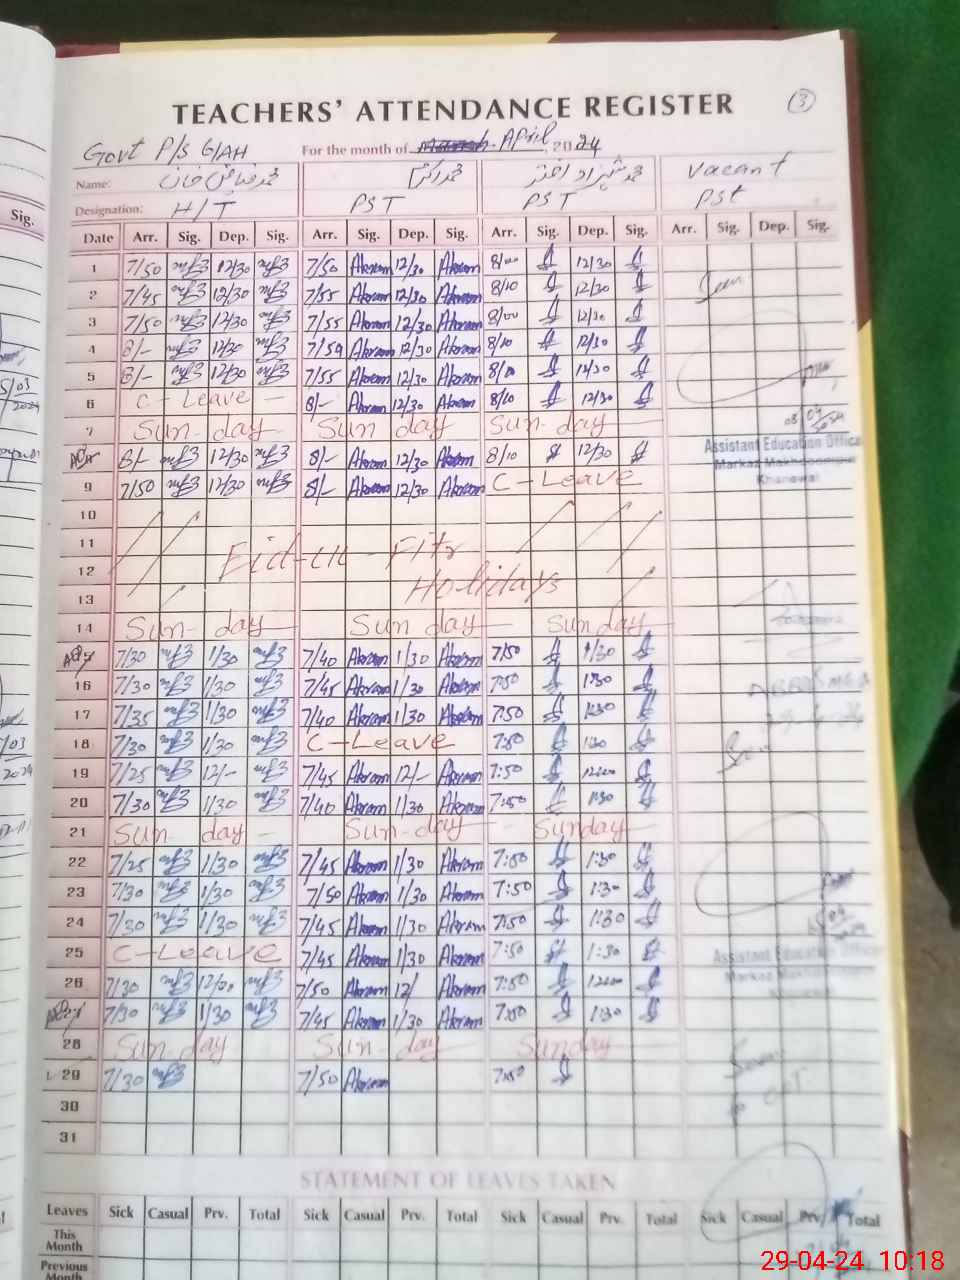 TEACHERS' ATTENDANCE REGISTER 3
Govt P/S 6/AH For the month of April, 2024
Name: محمد اکرم محمد شہزاد اختر vacant
Designation: H/T PST PST PSt
Date Arr. Sig. Dep. Sig. Arr. Sig. Dep. Sig. Arr. Sig. Dep. Sig. Arr. Sig. Dep. Sig.
1 7/50 12/30 7/50 Akram 12/30 Akram 8/00 12/30
2 7/45 12/30 7/55 Akram 12/30 Akram 8/10 12/30
3 7/50 12/30 7/55 Akram 12/30 Akram 8/00 12/30
4 8/- 12/30 7/59 Akram 12/30 Akram 8/10 12/30
5 8/- 12/30 7/55 Akram 12/30 Akram 8/10 12/30
6 C - Leave 8/- Akram 12/30 Akram 8/10 12/30
7 Sun-day Sun day Sun-day
8/- 12/30 8/- Akram 12/30 Akram 8/10 12/30
Assistant Education Officer
9 7/50 12/30 8/- Akram 12/30 Akram C-Leave
Khanewal
10
11 Eid-ul-Fitr
12 Holidays
13
14 Sun-day Sun day Sunday
7/30 1/30 7/40 Akram 1/30 Akram 7/50 1/30
16 7/30 1/30 7/45 Akram 1/30 Akram 7:50 1:30
17 7/35 1/30 7/40 Akram 1/30 Akram 7:50 1:30
18 7/30 1/30 C-Leave 7:50 1:30
19 7/25 12/- 7/45 Akram 12/- Akram 7:50 12:00
20 7/30 1/30 7/40 Akram 1/30 Akram 7:50 1:30
21 Sun day Sun-day Sunday
22 7/25 1/30 7/45 Akram 1/30 Akram 7:50 1:30
23 7/30 1/30 7/50 Akram 1/30 Akram 7:50 1:30
24 7/30 1/30 7/45 Akram 1/30 Akram 7:50 1:30
25 C-Leave 7/45 Akram 1/30 Akram 7:50 1:30
Assistant Education Officer
26 7/30 12/00 7/50 Akram 12/ Akram 7:50 12:00
7/30 1/30 7/45 Akram 1/30 Akram 7:50 1:30
28 Sun-day Sun-day Sunday
29 7/30 7/50 Akram 7:50
30
31
STATEMENT OF LEAVES TAKEN
Leaves Sick Casual Prv. Total Sick Casual Prv. Total Sick Casual Prv. Total Sick Casual Prv. Total
This
Month
Previous
Month
29-04-24 10:18